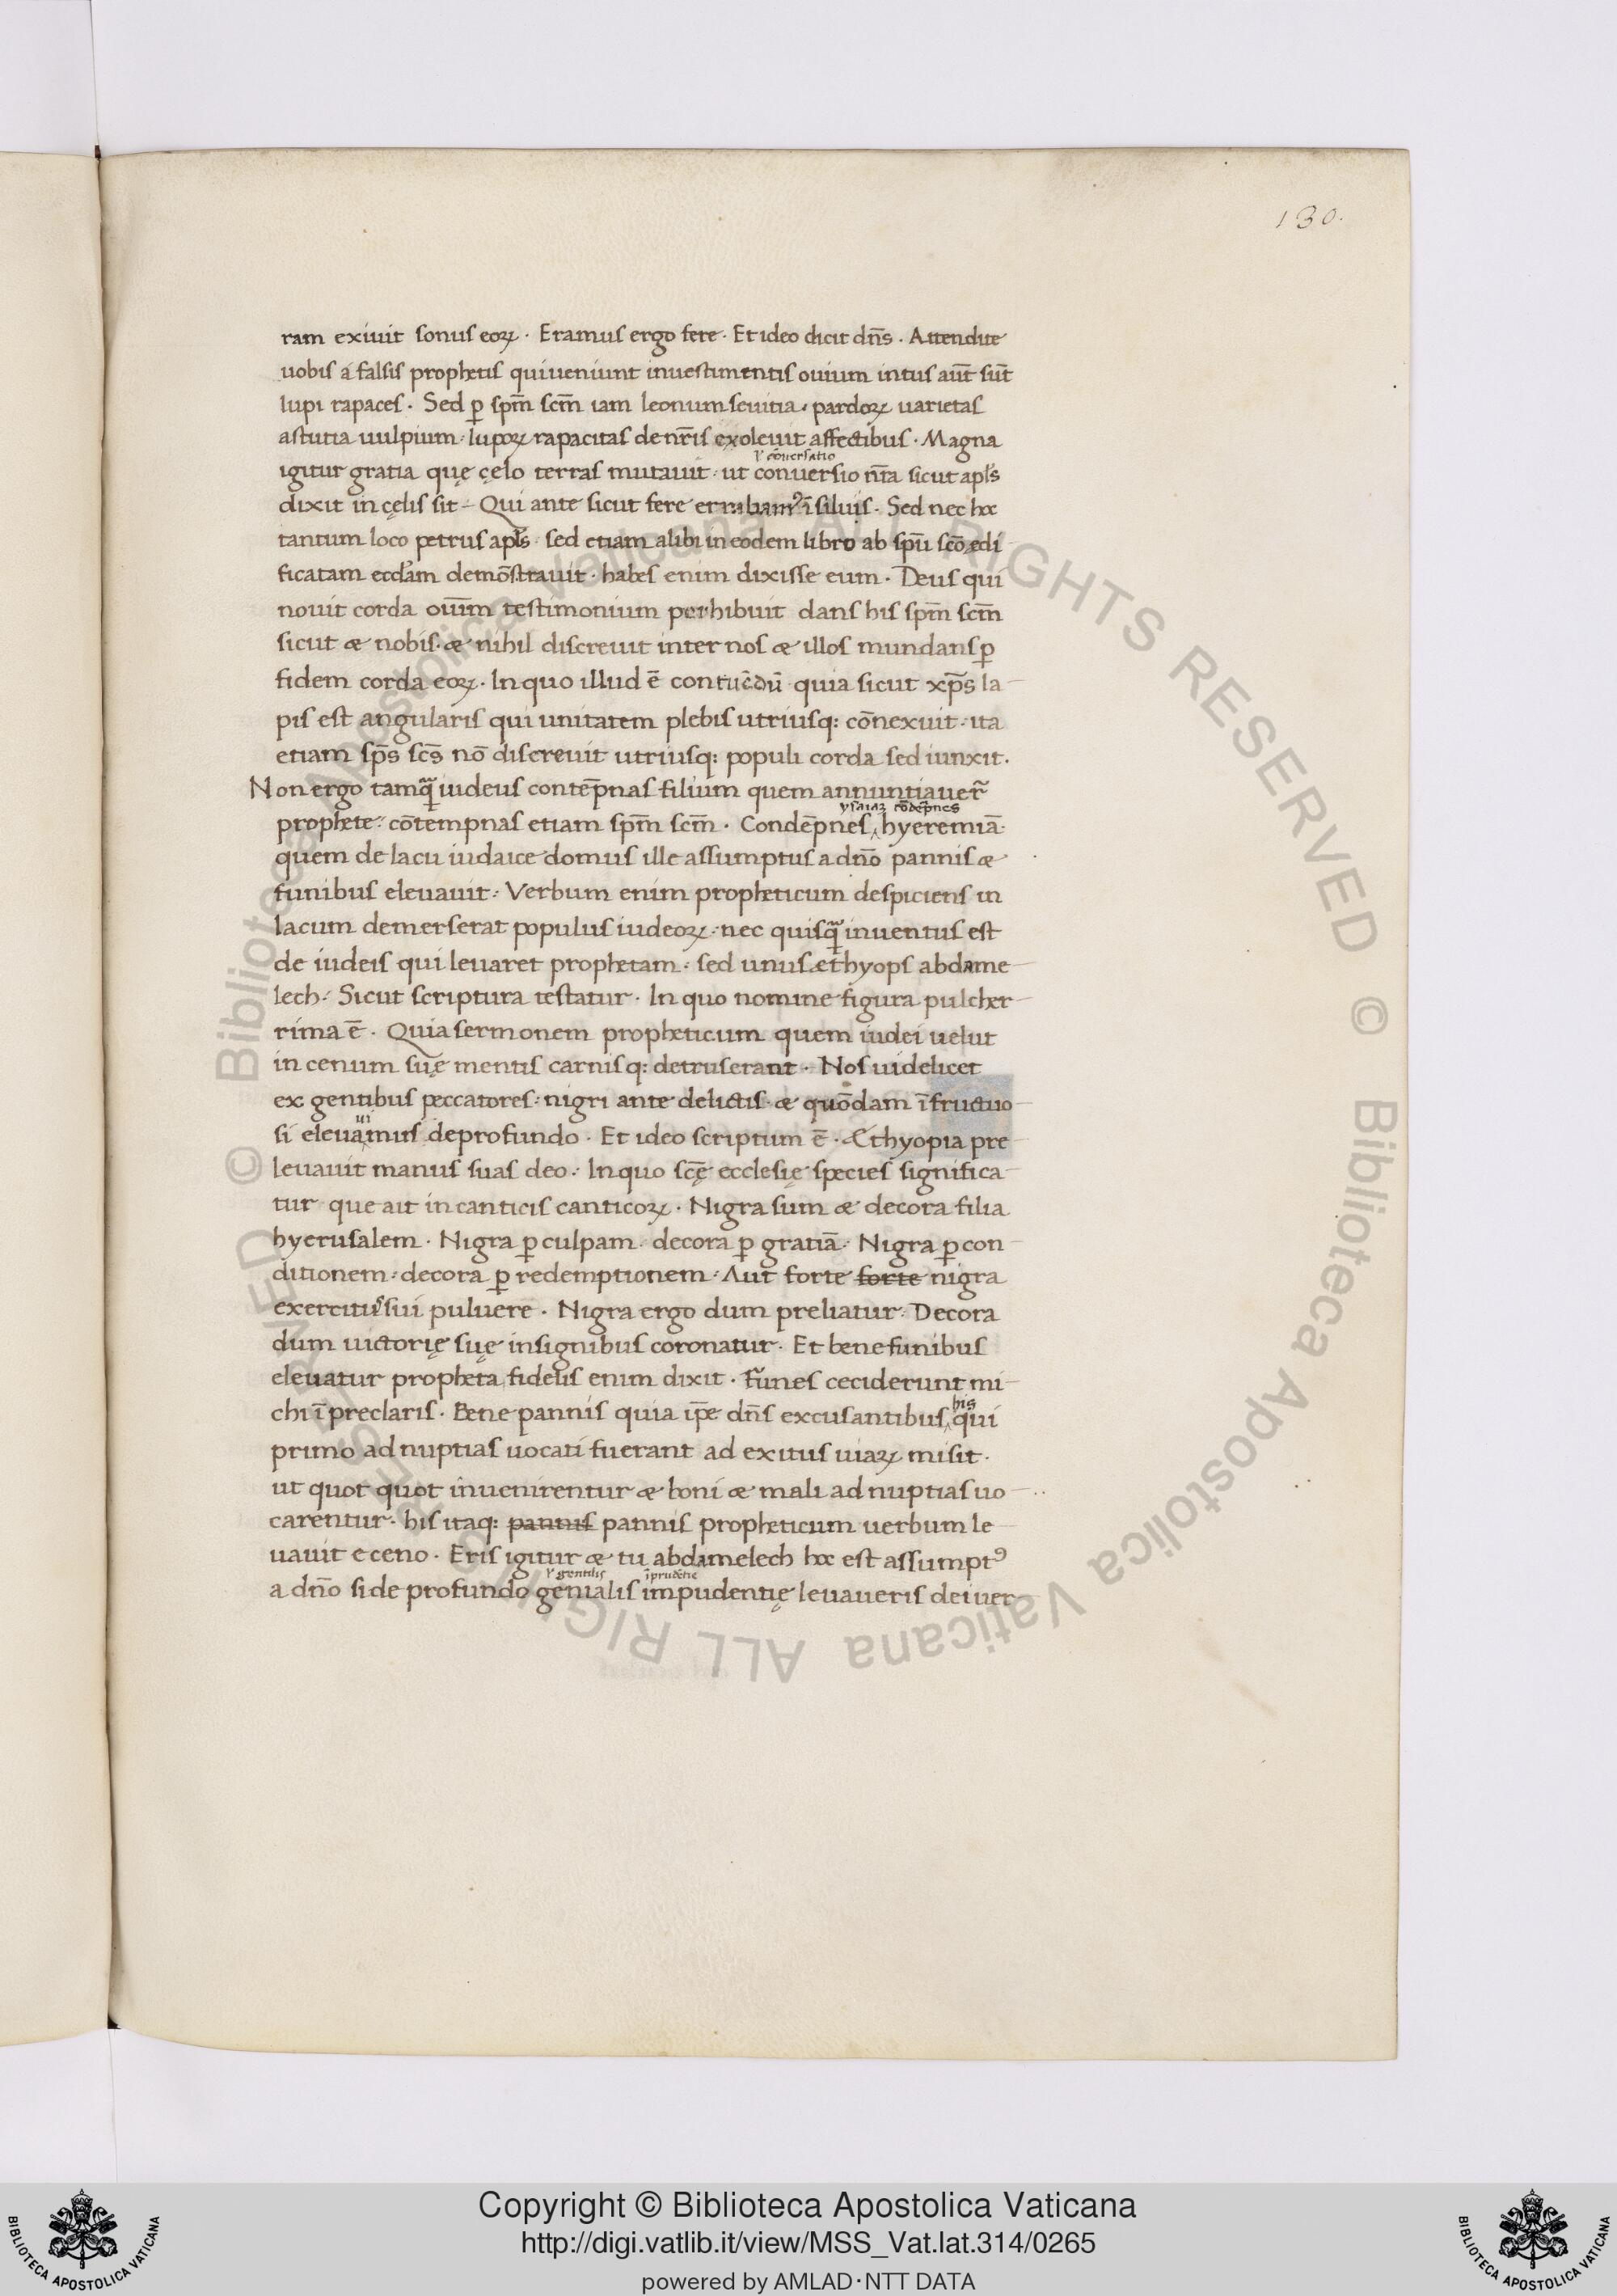 130.
ram exiuit sonus eoꝝ · Eramus ergo fere · Et ideo dicit dn̄s · Attendite
uobis a falsis prophetis qui ueniunt in uestimentis ouium intus aūt sūt
lupi rapaces · Sed ꝑ sp̄m sc̄m iam leonum seuitia · pardoꝝ uarietas
astutia uulpium · lupoꝝ rapacitas de nr̄is exoleuit affectibus · Magna
ł cōuersatio
igitur gratia quę cęlo terras mutauit · ut conuersio nr̄a sicut apl̄s
dixit in cęlis sit – Qui ante sicut fere errabamꝰ ī siluis · Sed nec hoc
tantum loco petrus apl̄s · sed etiam alibi in eodem libro ab sp̄u sc̄o ędi
ficatam eccl̄am demōstrauit · habes enim dixisse eum · Deus qui
nouit corda oūīm testimonium perhibuit dans his sp̄m sc̄m
sicut & nobis · & nihil discreuit inter nos & illos mundans ꝑ
fidem corda eoꝝ · In quo illud ē contuēdū quia sicut xp̄s la
pis est angularis qui unitatem plebis utriusq: cōnexuit · ita
etiam sp̄s sc̄s nō discreuit utriusq: populi corda sed iunxit ·
Non ergo tamq̄ iudeus contēpnas filium quem annuntiauer̄
ysaiaꝫ cōdēpnes
prophete · cōtempnas etiam sp̄m sc̄m · Condēpnes hyeremiā ·
quem de lacu iudaice domus ille assumptus a dn̄o pannis &
funibus eleuauit · Verbum enim propheticum despiciens in
lacum demerserat populus iudeoꝝ · nec quisq̄ inuentus est
de iudeis qui leuaret prophetam · sed unus ęthyops abdame
lech · Sicut scriptura testatur · In quo nomine figura pulcher
rima ē · Quia sermonem propheticum quem iudei uelut
in cenum suę mentis carnisq: detruserant · Nos uidelicet
ex gentibus peccatores · nigri ante delictis · & quōdam ī fructuo
ui
si eleuamus de profundo · Et ideo scriptum ē · Æthyopia pre
leuauit manus suas deo · In quo sc̄ę ecclesię species significa
tur que ait in canticis canticoꝝ · Nigra sum & decora filia
hyerusalem · Nigra ꝑ culpam · decora ꝑ gratiā · Nigra ꝑ con
ditionem · decora ꝑ redemptionem · Aut forte forte nigra
exercitiꝰ sui puluere · Nigra ergo dum preliatur · Decora
dum uictorię suę insignibus coronatur · Et bene funibus
eleuatur propheta fidelis enim dixit · funes ceciderunt mi
his
chi ī preclaris · Bene pannis quia ip̄e dn̄s excusantibus qui
primo ad nuptias uocati fuerant ad exitus uiaꝝ misit ·
ut quot quot inuenirentur & boni & mali ad nuptias uo
carentur · his itaq: pannis pannis propheticum uerbum le
uauit e ceno · Eris igitur & tu abdamelech hoc est assumptꝰ
ł gentilis īprudētie
a dn̄o si de profundo genialis impudentię leuaueris dei uer
© Biblioteca Apostolica Vaticana ALL RIGHTS RESERVED © Biblioteca Apostolica Vaticana ALL RIGHTS RESERVED
BIBLIOTECA APOSTOLICA VATICANA
Copyright © Biblioteca Apostolica Vaticana
http://digi.vatlib.it/view/MSS_Vat.lat.314/0265
powered by AMLAD·NTT DATA
BIBLIOTECA APOSTOLICA VATICANA